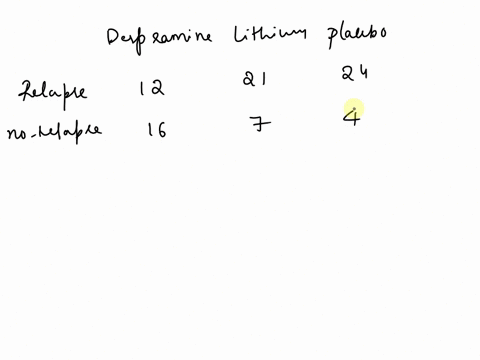 Despramine Lithium placebo
Relapse 12 21 24
no-relapse 16 7 4